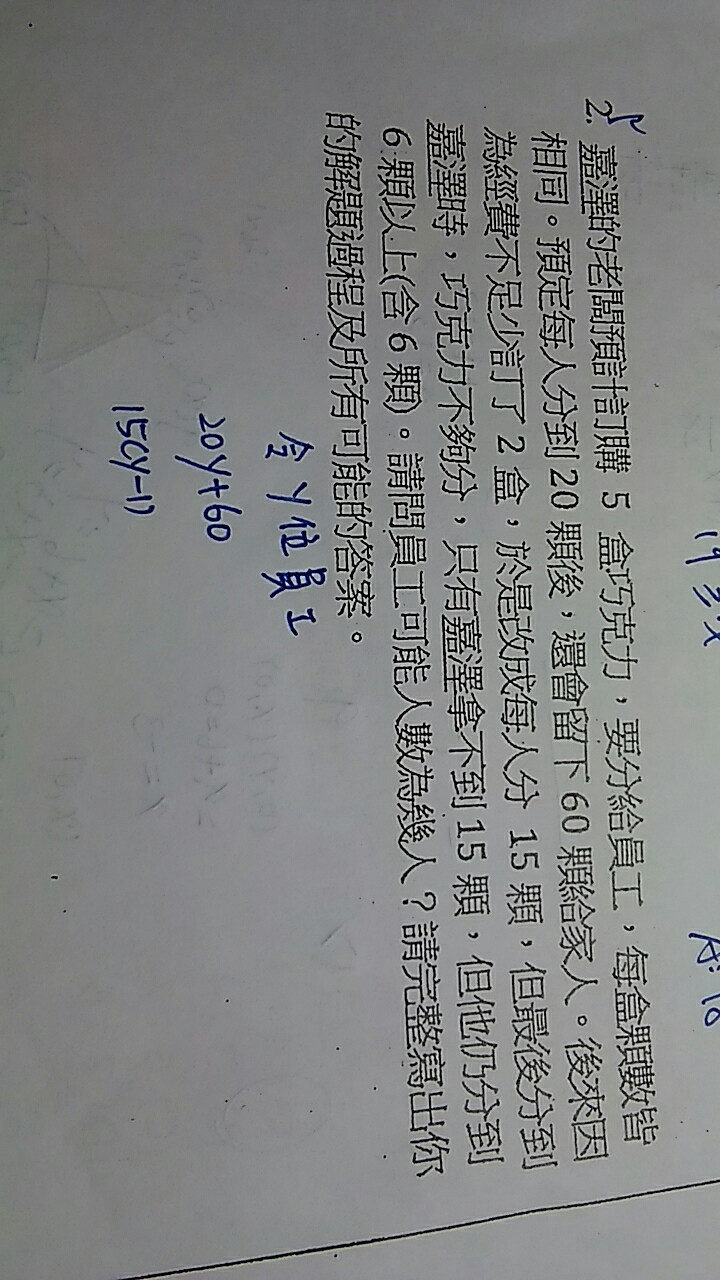 2. 嘉澤的老闆預計訂購 5 盒巧克力，要分給員工，每盒顆數皆
相同。預定每人分到 20 顆後，還會留下 60 顆給家人。後來因
為經費不足少訂了 2 盒，於是改成每人分 15 顆，但最後分到
嘉澤時，巧克力不夠分，只有嘉澤拿不到 15 顆，但他仍分到
6 顆以上(含 6 顆)。請問員工可能人數為幾人？請完整寫出你
的解題過程及所有可能的答案。
令 y 位員工
20y+60
15(y-1)